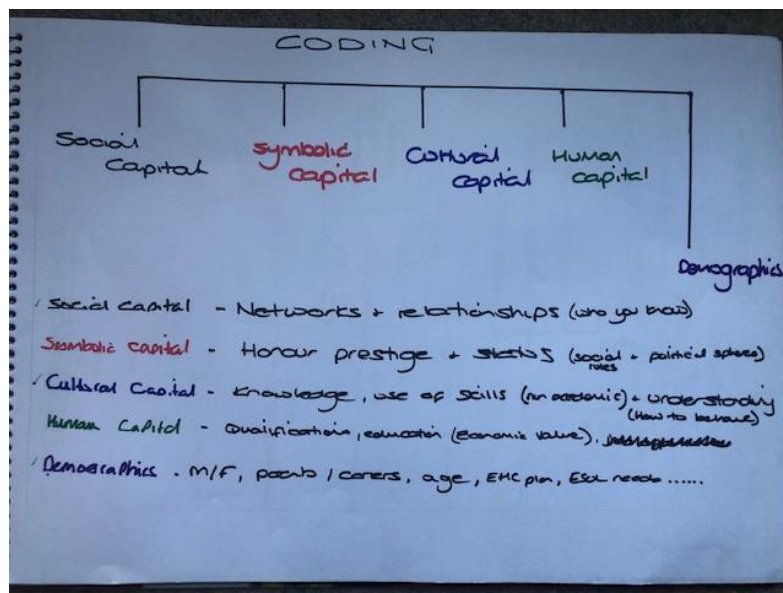 CODING
Social Capital
Symbolic capital
Cultural capital
Human capital
Demographics
Social capital - Networks + relationships (who you know)
Symbolic capital - Honour prestige + status (social + political spheres)
roles
Cultural Capital - Knowledge, use of skills (non academic) + understanding
(How to behave)
Human Capital - Qualifications, education (economic value),
Demographics - M/F, / carers, age, EHC plan, needs ......